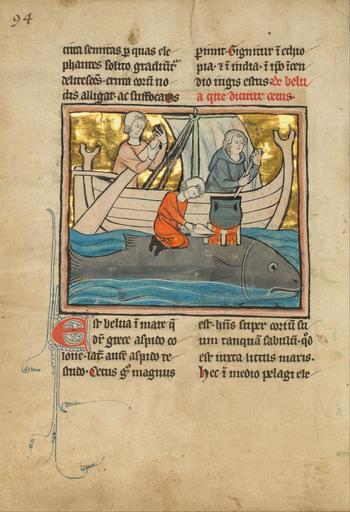 94
circa semitas p quas ele
phantes solito gradiūt᷑
delitescēs. crura eorū no
dis alligat. ac suffocatos
ꝑimit. Gignitur ī ethio
pia. ⁊ ī india. ī ip̄o īcen
dio iugis estus. De belu
a que dicitur cetus.
Est belua ī mare q̄
dr̄ grece aspido co
lone. lat. aūt aspido te
studo. Cetus ḡ magnus
est. hn̄s super coriū su
um tanquā sabulū. qd̓
est iuxta littus maris.
Hec ī medio pelagi ele